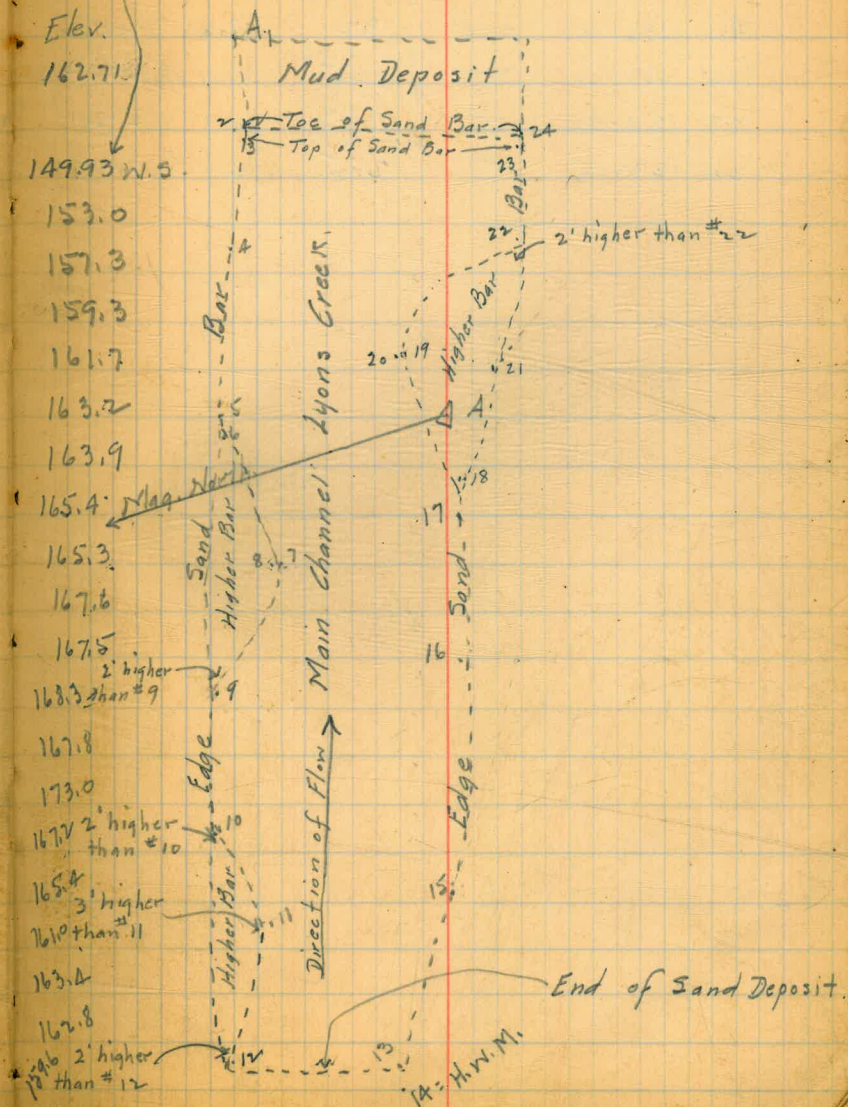 Elev.
162.71
149.93 W.S.
153.0
157.3
159.3
161.7
163.2
163.9
165.4
165.3
167.6
167.5
168.3
167.8
173.0
167.2
165.4
161.0
163.4
162.8
159.6
A
Mud Deposit
2
Toe of Sand Bar
24
13
Top of Sand Bar
23
4
22
2' higher than #22
Bar
Higher Bar
20
19
21
A
18
17
Mag. Nor.
Bar
Sand
Edge
Higher Bar
8
7
2' higher
than #9
9
Main Channel Lyons Creek.
Direction of Flow
Sand
Edge
16
10
2' higher
than #10
15
3' higher
than #11
11
Higher Bar
End of Sand Deposit.
2' higher
than #12
12
13
14 = H.W.M.